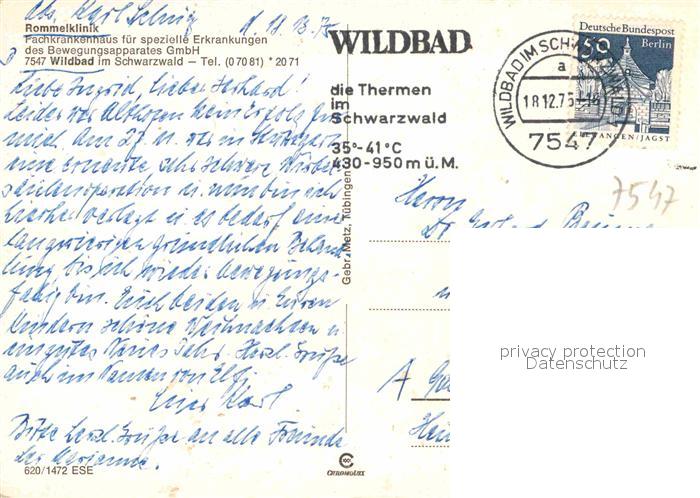 Abs. Karl
d. 18. 12. 75
Rommelklinik
Fachkrankenhaus für spezielle Erkrankungen
des Bewegungsapparates GmbH
7547 Wildbad im Schwarzwald – Tel. (0 70 81) * 20 71
Liebe Ingrid, lieber Gerhard!
Leider war Althofen kein Erfolg für
mich. Am 27. XI. war in
eine erneute, sehr schwere Wirbel-
säulenoperation u. nun bin ich
hierher verlegt u. es bedarf einer
langwierigen gründlichen Behand-
lung bis ich wieder bewegungs-
fähig bin. Euch beiden u. Euren
Kindern schöne Weihnachten u.
ein gutes Neues Jahr. Herzl. Grüße
auch im Namen von Elfi
Euer Karl.
Bitte herzl. Grüße an alle Freunde
der Marianne.
620/1472 ESE
WILDBAD
die Thermen
im
Schwarzwald
35°-41°C
430-950 m ü. M.
WILDBAD IM SCHWARZWALD
a
18.12.75
7547
Deutsche Bundespost
50
Berlin
ELLWANGEN/JAGST
7547
Herrn
Dr. Gerhard
A
Gebr. Metz, Tübingen
CHROMOLUX
privacy protection
Datenschutz